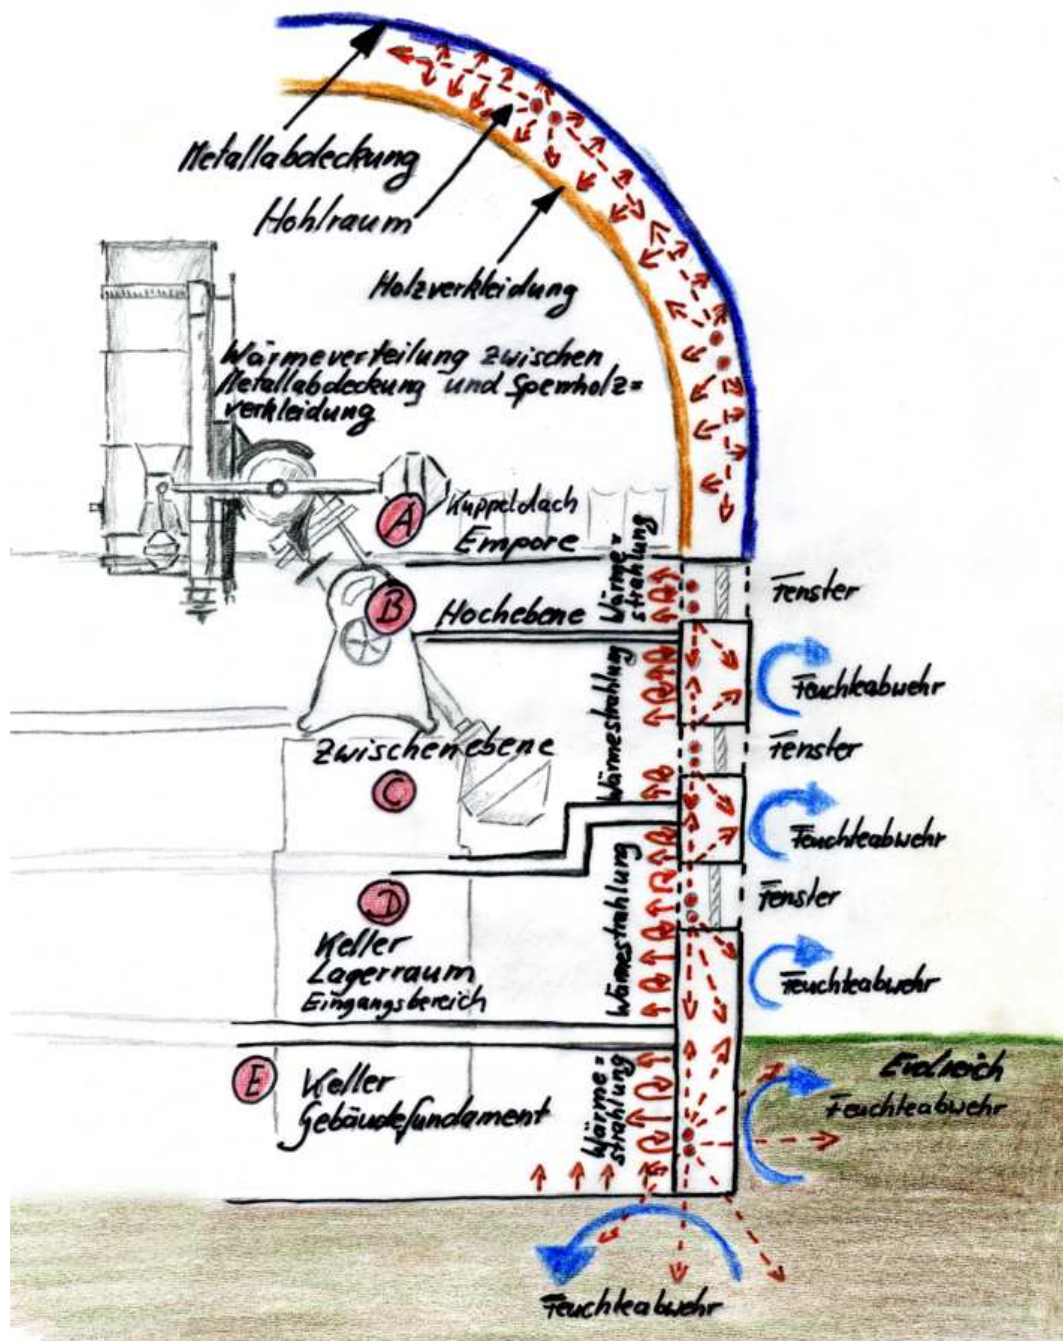 Metallabdeckung
Hohlraum
Holzverkleidung
Wärmeverteilung zwischen
Metallabdeckung und Sperrholz=
verkleidung
A
Kuppeldach
Empore
Wärme=
strahlung
Fenster
B
Hochebene
Wärmestrahlung
Feuchteabwehr
Zwischenebene
Fenster
C
Feuchteabwehr
D
Wärmestrahlung
Fenster
Keller
Lagerraum
Eingangsbereich
Feuchteabwehr
E
Keller
Gebäudefundament
Wärme=
strahlung
Erdreich
Feuchteabwehr
Feuchteabwehr